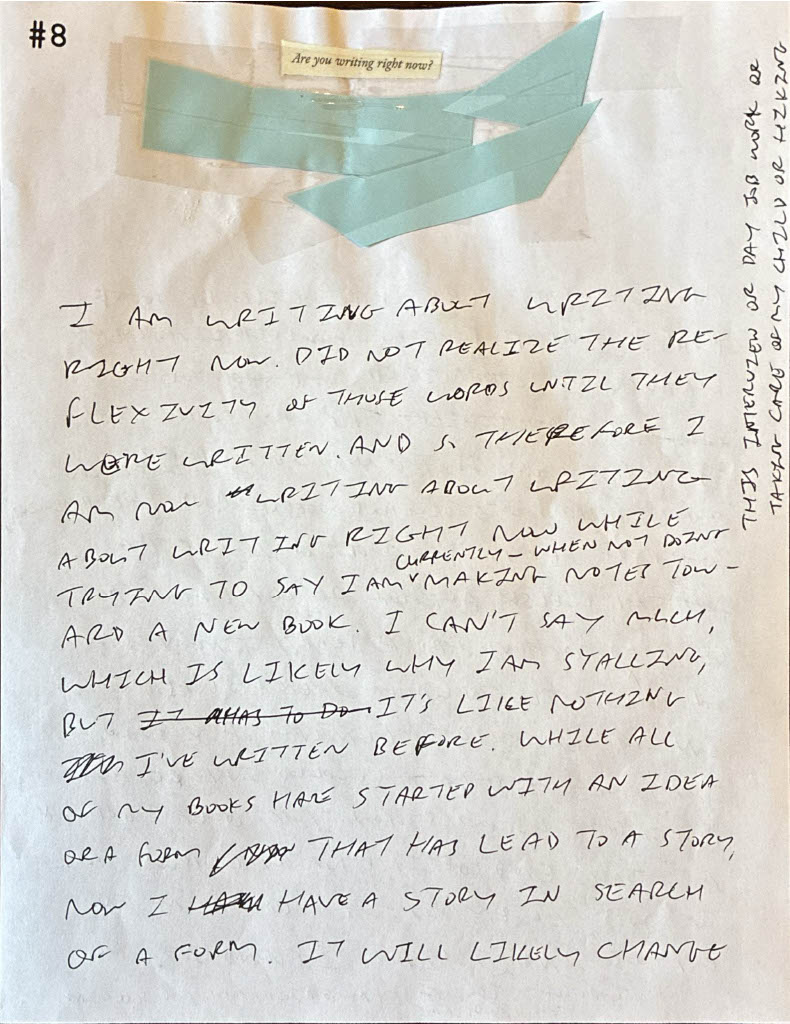 #8
Are you writing right now?
I AM WRITING ABOUT WRITING
RIGHT NOW. DID NOT REALIZE THE RE-
FLEXIVITY OF THOSE WORDS UNTIL THEY
WERE WRITTEN. AND SO THEREFORE I
AM NOW WRITING ABOUT WRITING
ABOUT WRITING RIGHT NOW WHILE
CURRENTLY – WHEN NOT DOING
TRYING TO SAY I AM MAKING NOTES TOW-
ARD A NEW BOOK. I CAN'T SAY MUCH,
WHICH IS LIKELY WHY I AM STALLING,
BUT IT HAS TO DO IT'S LIKE NOTHING
I'VE WRITTEN BEFORE. WHILE ALL
OF MY BOOKS HAVE STARTED WITH AN IDEA
OR A FORM THAT HAS LEAD TO A STORY,
NOW I HAVE A STORY IN SEARCH
OF A FORM. IT WILL LIKELY CHANGE
THIS INTERVIEW OR DAY JOB WORK OR
TAKING CARE OF MY CHILD OR HIKING